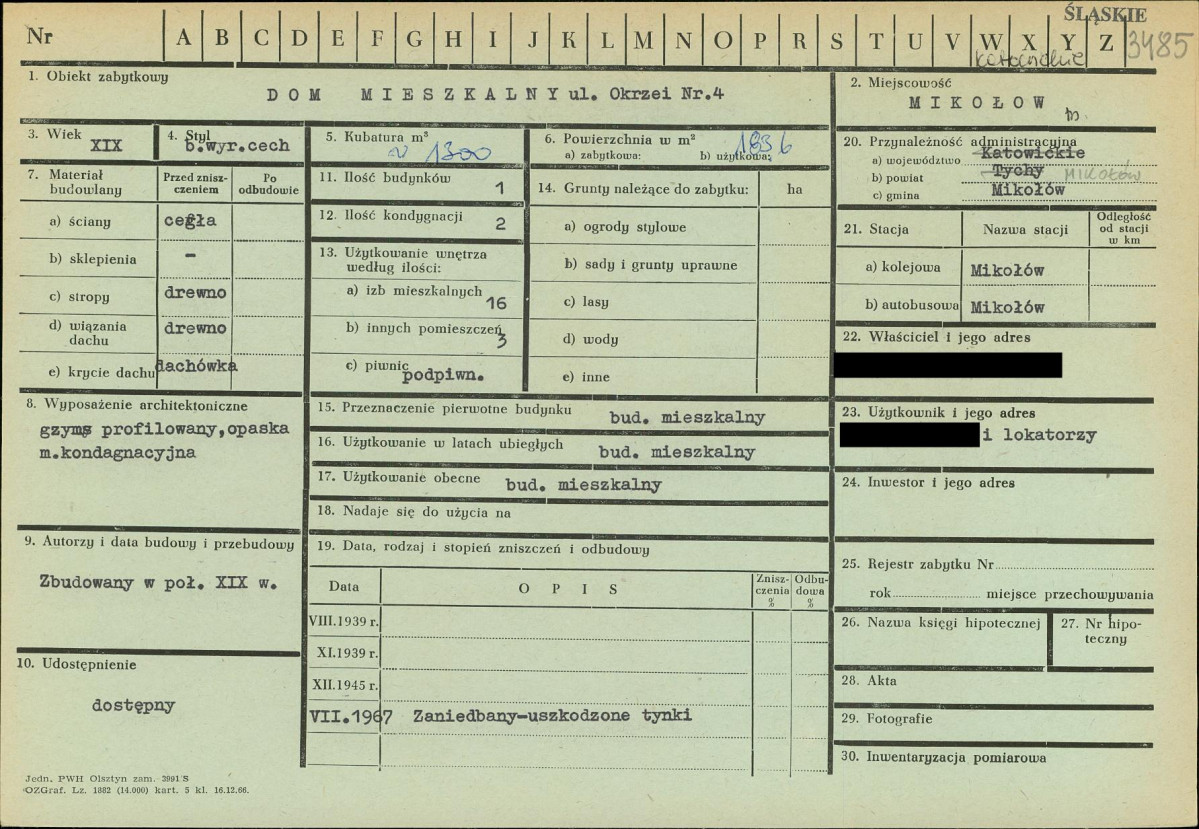 ŚLĄSKIE
Nr A B C D E F G H I J K L M N O P R S T U V W X Y Z 3485
katowickie
1. Obiekt zabytkowy
DOM MIESZKALNY ul. Okrzei Nr.4
2. Miejscowość
MIKOŁOW
m
3. Wiek
XIX
4. Styl
b.wyr.cech
5. Kubatura m³
~ 1300
6. Powierzchnia w m²
a) zabytkowa: b) użytkowa:
1836
7. Materiał budowlany
Przed zniszczeniem
Po odbudowie
a) ściany cegła
b) sklepienia -
c) stropy drewno
d) wiązania dachu drewno
e) krycie dachu dachówka
8. Wyposażenie architektoniczne
gzyms profilowany,opaska
m.kondagnacyjna
9. Autorzy i data budowy i przebudowy
Zbudowany w poł. XIX w.
10. Udostępnienie
dostępny
11. Ilość budynków 1
12. Ilość kondygnacji 2
13. Użytkowanie wnętrza
według ilości:
a) izb mieszkalnych 16
b) innych pomieszczeń 3
c) piwnic podpiwn.
14. Grunty należące do zabytku: ha
a) ogrody stylowe
b) sady i grunty uprawne
c) lasy
d) wody
e) inne
15. Przeznaczenie pierwotne budynku bud. mieszkalny
16. Użytkowanie w latach ubiegłych bud. mieszkalny
17. Użytkowanie obecne bud. mieszkalny
18. Nadaje się do użycia na
19. Data, rodzaj i stopień zniszczeń i odbudowy
Data
OPIS
Zniszczenia %
Odbudowa %
VIII.1939 r.
XI.1939 r.
XII.1945 r.
VII.1967 Zaniedbany-uszkodzone tynki
20. Przynależność administracyjna
a) województwo Katowickie
b) powiat Tychy MIKOŁÓW
c) gmina Mikołów
21. Stacja
Nazwa stacji
Odległość od stacji w km
a) kolejowa Mikołów
b) autobusowa Mikołów
22. Właściciel i jego adres
23. Użytkownik i jego adres
i lokatorzy
24. Inwestor i jego adres
25. Rejestr zabytku Nr
rok miejsce przechowywania
26. Nazwa księgi hipotecznej
27. Nr hipoteczny
28. Akta
29. Fotografie
30. Inwentaryzacja pomiarowa
Jedn. PWH Olsztyn zam. 3991 S
OZGraf. Lz. 1882 (14.000) kart. 5 kl. 16.12.66.